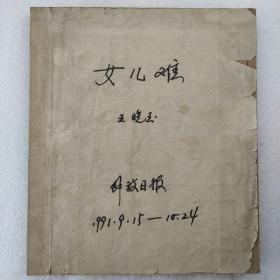 女儿难
王晓玉
解放日报
1991.9.15—10.24